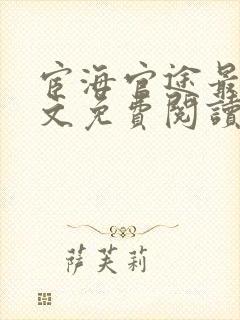 宦海官途最
文免費閱讀
萨芙莉